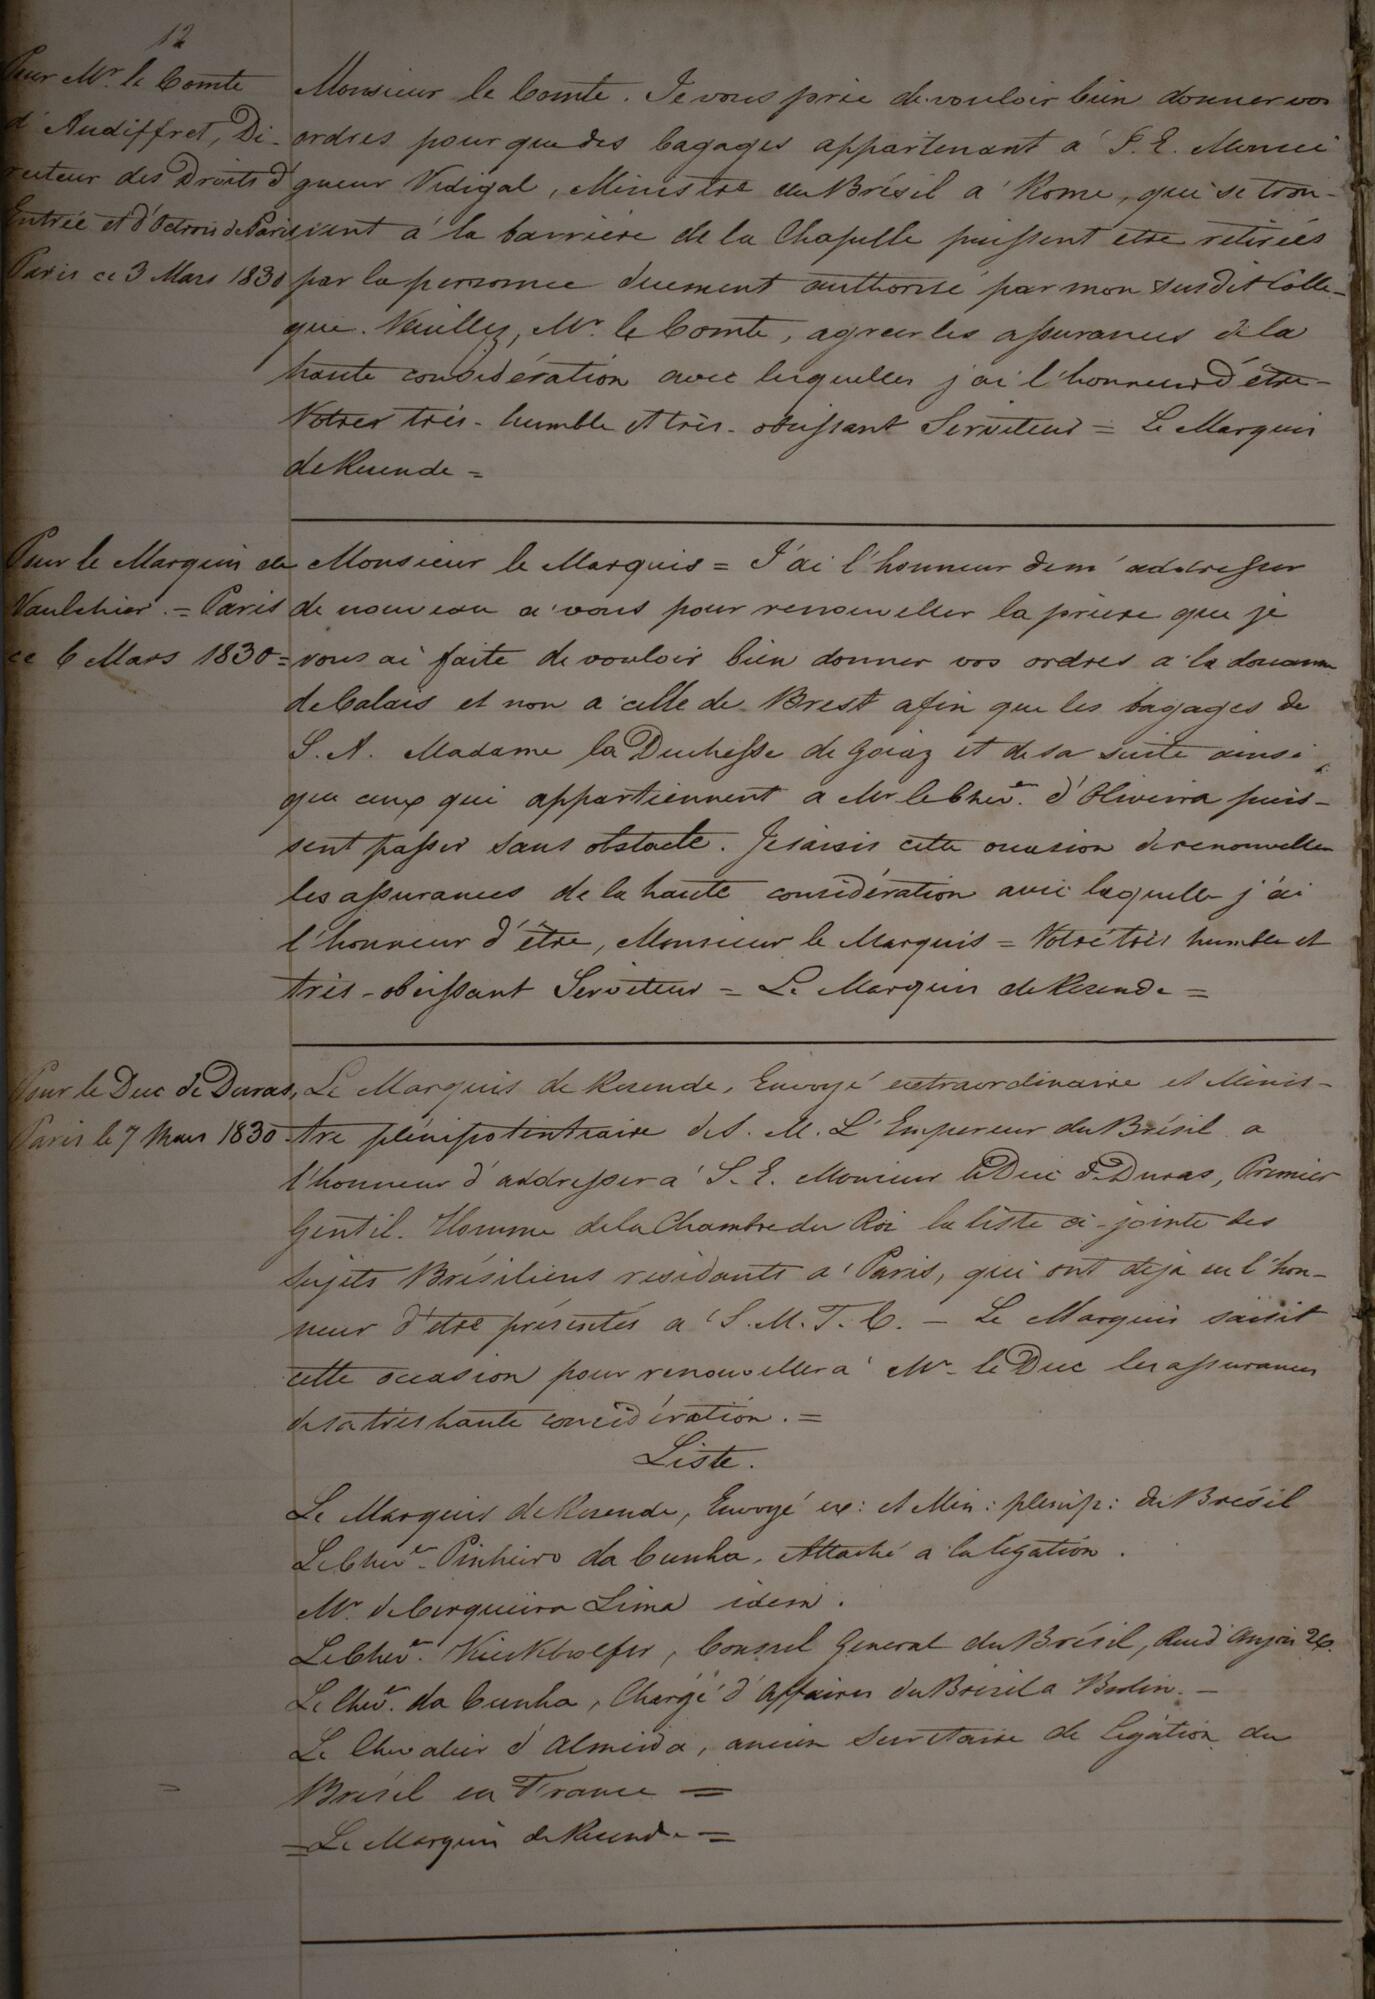 12
Pour Mr. le Comte
d'Audiffret, Di-
recteur des Droits d'
Entrée et d'Octrois de Paris
Paris ce 3 Mars 1830
Monsieur le Comte. Je vous prie de vouloir bien donner vos
ordres pour que des bagages appartenant à S. E. Monsei
gneur Vidigal, Ministre du Brésil a Rome, qui se trou-
vent à la barrière de la Chapelle puissent etre retirées
par la personne duement authorisé par mon susdit Colle-
gue. Veuillez, Mr. le Comte, agreer les assurances de la
haute considération avec lesquelles j'ai l'honneur d'être
Votres très-humble et très-obeissant Serviteur = Le Marquis
de Resende =
Pour le Marquis de
Vaulchier. = Paris
ce 6 Mars 1830 =
Monsieur le Marquis = J'ai l'honneur de m'addresser
de nouveau a vous pour renouveller la priere que je
vous ai faite de vouloir bien donner vos ordres a la douanne
de Calais et non a celle de Brest afin que les bagages de
S. A. Madame la Duchesse de Goiaz et de sa suite ainsi
que ceux qui appartiennent a Mr. le Cher. d'Oliveira puis-
sent passer sans obstacle. Je saisis cette occasion de renouveller
les assurances de la haute considération avec laquelle j'ai
l'honneur d'être, Monsieur le Marquis = Votre très humble et
très-obeissant Serviteur = Le Marquis de Resende =
Pour le Duc de Duras,
Paris le 7 Mars 1830
Le Marquis de Resende, Envoyé extraordinaire et Minis-
tre plénipotentiaire de S. M. L'Empereur du Brésil a
l'honneur d'addresser a S. E. Monsieur le Duc de Duras, Premier
Gentil-Homme de la Chambre du Roi la liste ci-jointe des
Sujets Brésiliens residants a Paris, qui ont deja eu l'hon-
neur d'etre présentés a S. M. T. C. - Le Marquis saisit
cette occasion pour renouveller a Mr. le Duc les assurances
de sa très haute considération. =
Liste.
Le Marquis de Resende, Envoyé ex: et Min: plenip: du Brésil
Le Cher. Pinheiro da Cunha, Attaché a la légation.
Mr. de Cerqueira Lima idem.
Le Cher. Consul General du Brésil, Rue d'Anjou 26.
Le Cher. da Cunha, Chargé d'Affaires du Brésil a Berlin. -
Le Chevalier d'Almeida, ancien Secretaire de légation du
Brésil en France =
= Le Marquis de Resende =